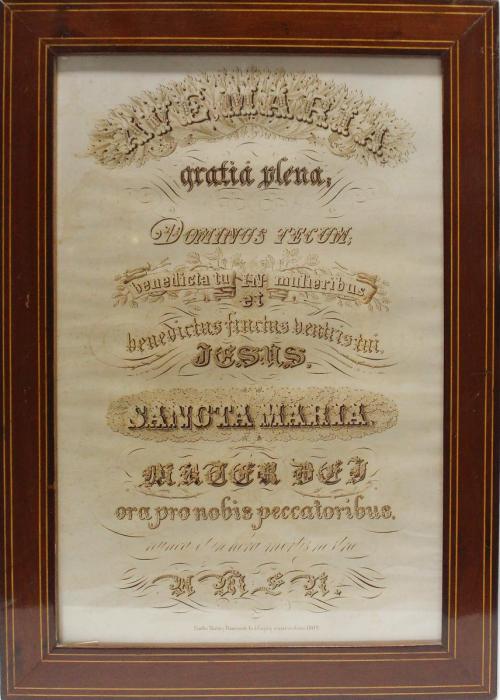 AVE MARIA
gratiâ plena,
DOMINUS TECUM;
benedicta tu IN mulieribus
et
benedictus fructus ventris tui,
JESUS.
SANCTA MARIA,
MATER DEI
ora pro nobis peccatoribus,
nunc et in hora mortis
AMEN.